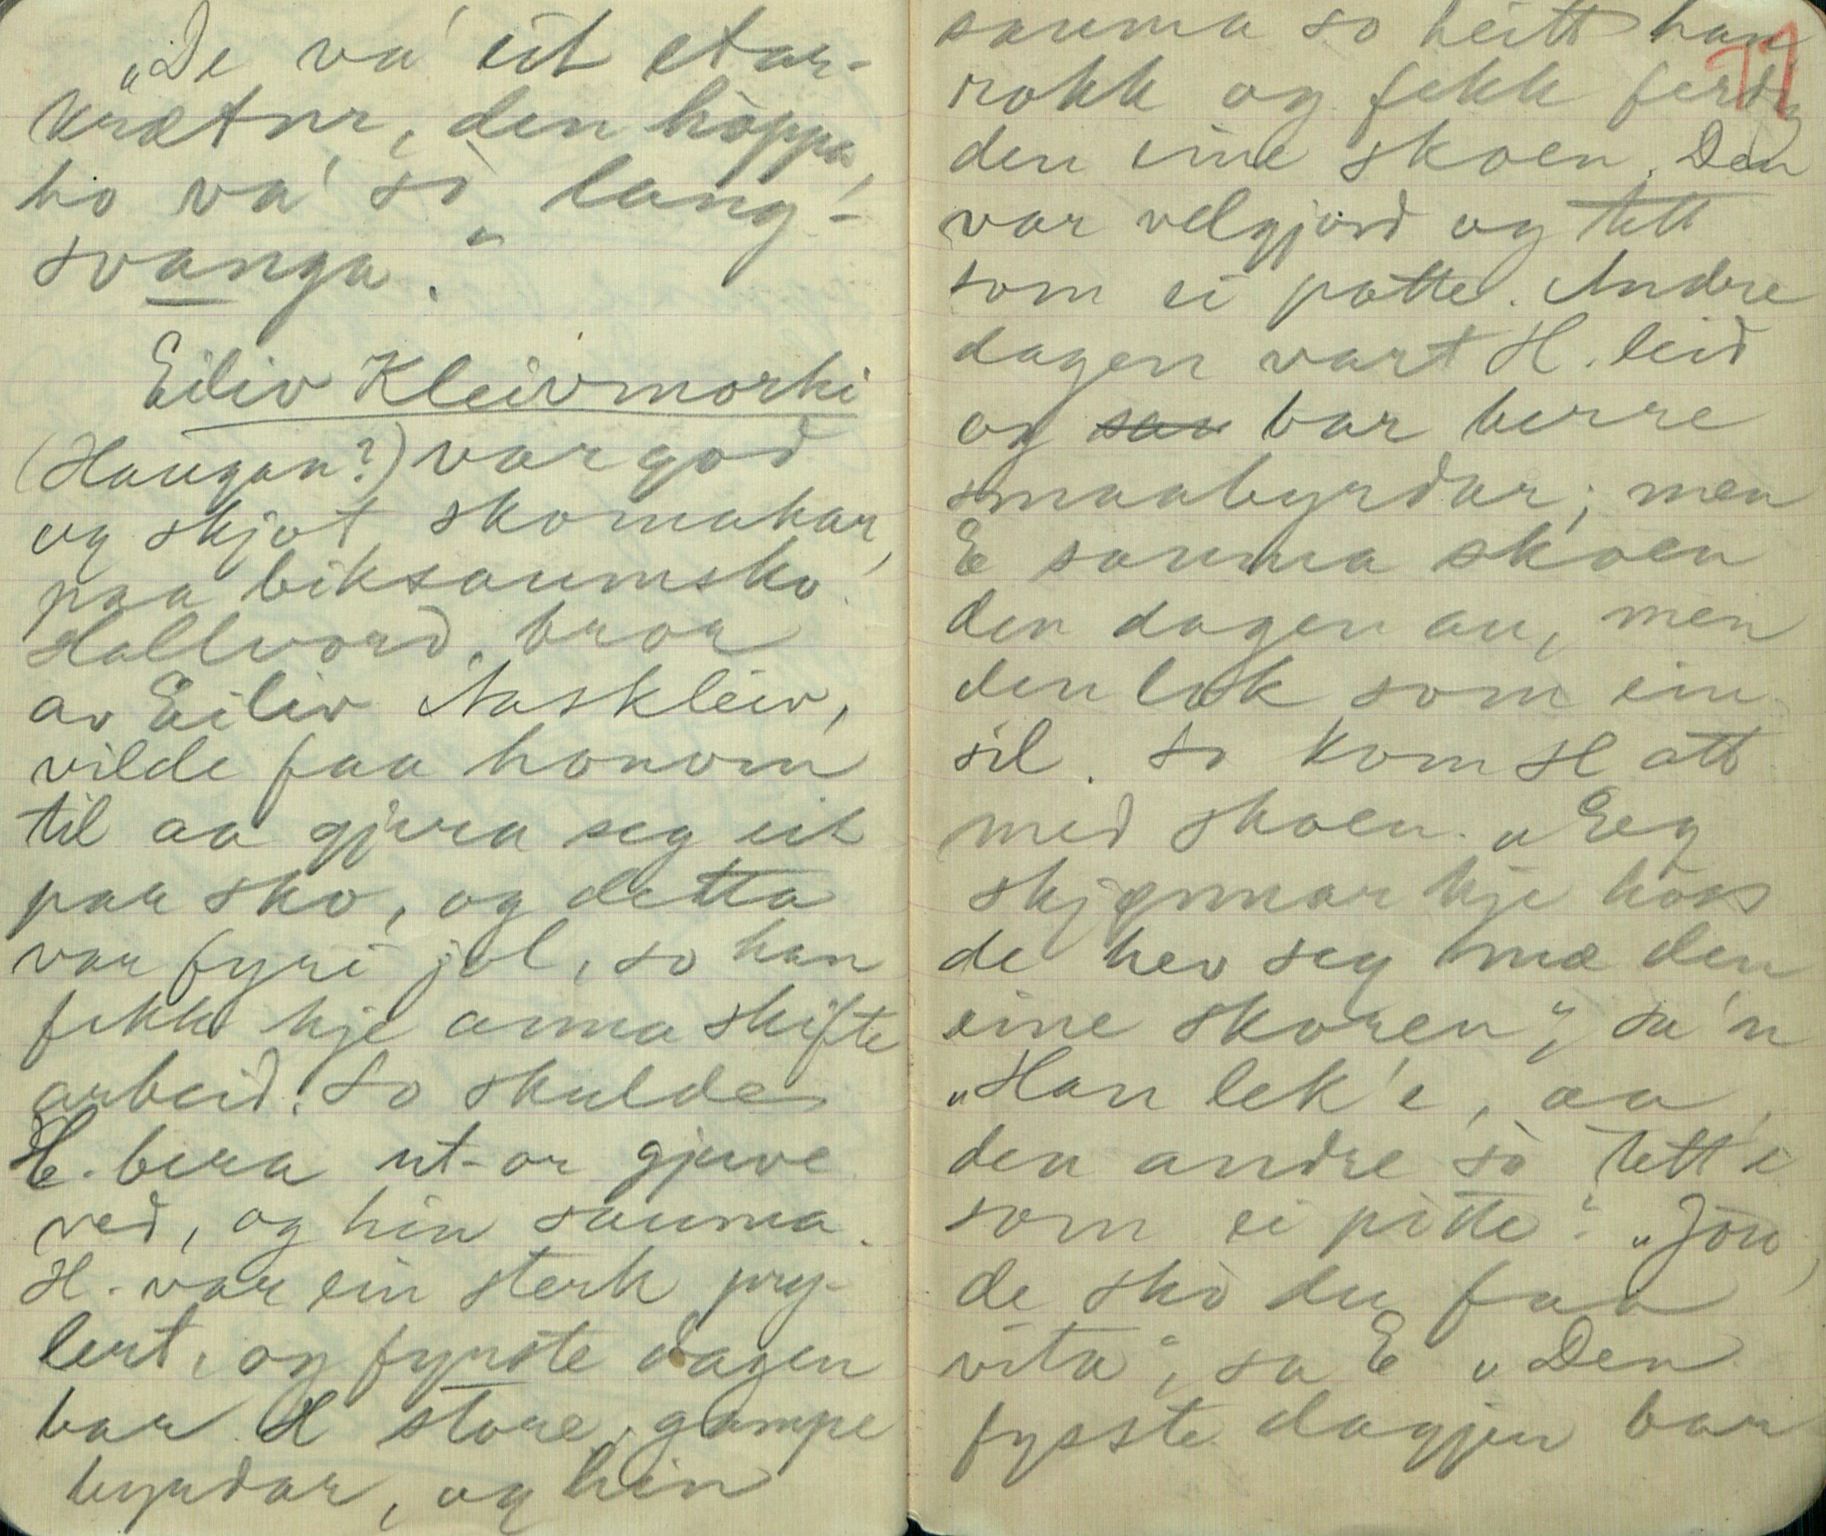 „De va' eit etar-
krætur, den høppa,
ho va' sò lang'-
svanga."
Eiliv Kleivmorki
(Haugan?) var god
og skjot skomakar,
paa biksaumsko.
Hallvord, bror
av Eiliv Naskleiv,
vilde faa honom
til aa gjera seg eit
par sko, og detta
var fyri jol, so han
fekk kje anna skifte
arbeid. So skulde
H. bera ut-or gjuve
ved, og hin sauma.
H. var ein sterk pry-
lert, og fyrste dagen
bar H store, gampe
byrdar, og hin
sauma so heitt han
rokk og fekk ferdig
den eine skoen. Den
var velgjord og tett
som ei potte. Andre
dagen vart H. leid
og sau bar berre
smaabyrdar; men
E sauma skoen
den dagen au, men
den lak som ein
sil. So kom H att
med skoen. „Eeg
skjønnar kje hoss
de hev seg mæ den
eine skoren", sa'n
„Han lek'e, aa
den andre sò tett'e
som ei pòtte". „Jou,
de skò du faa
vita", sa E „Den
fysste dagjen bar
71